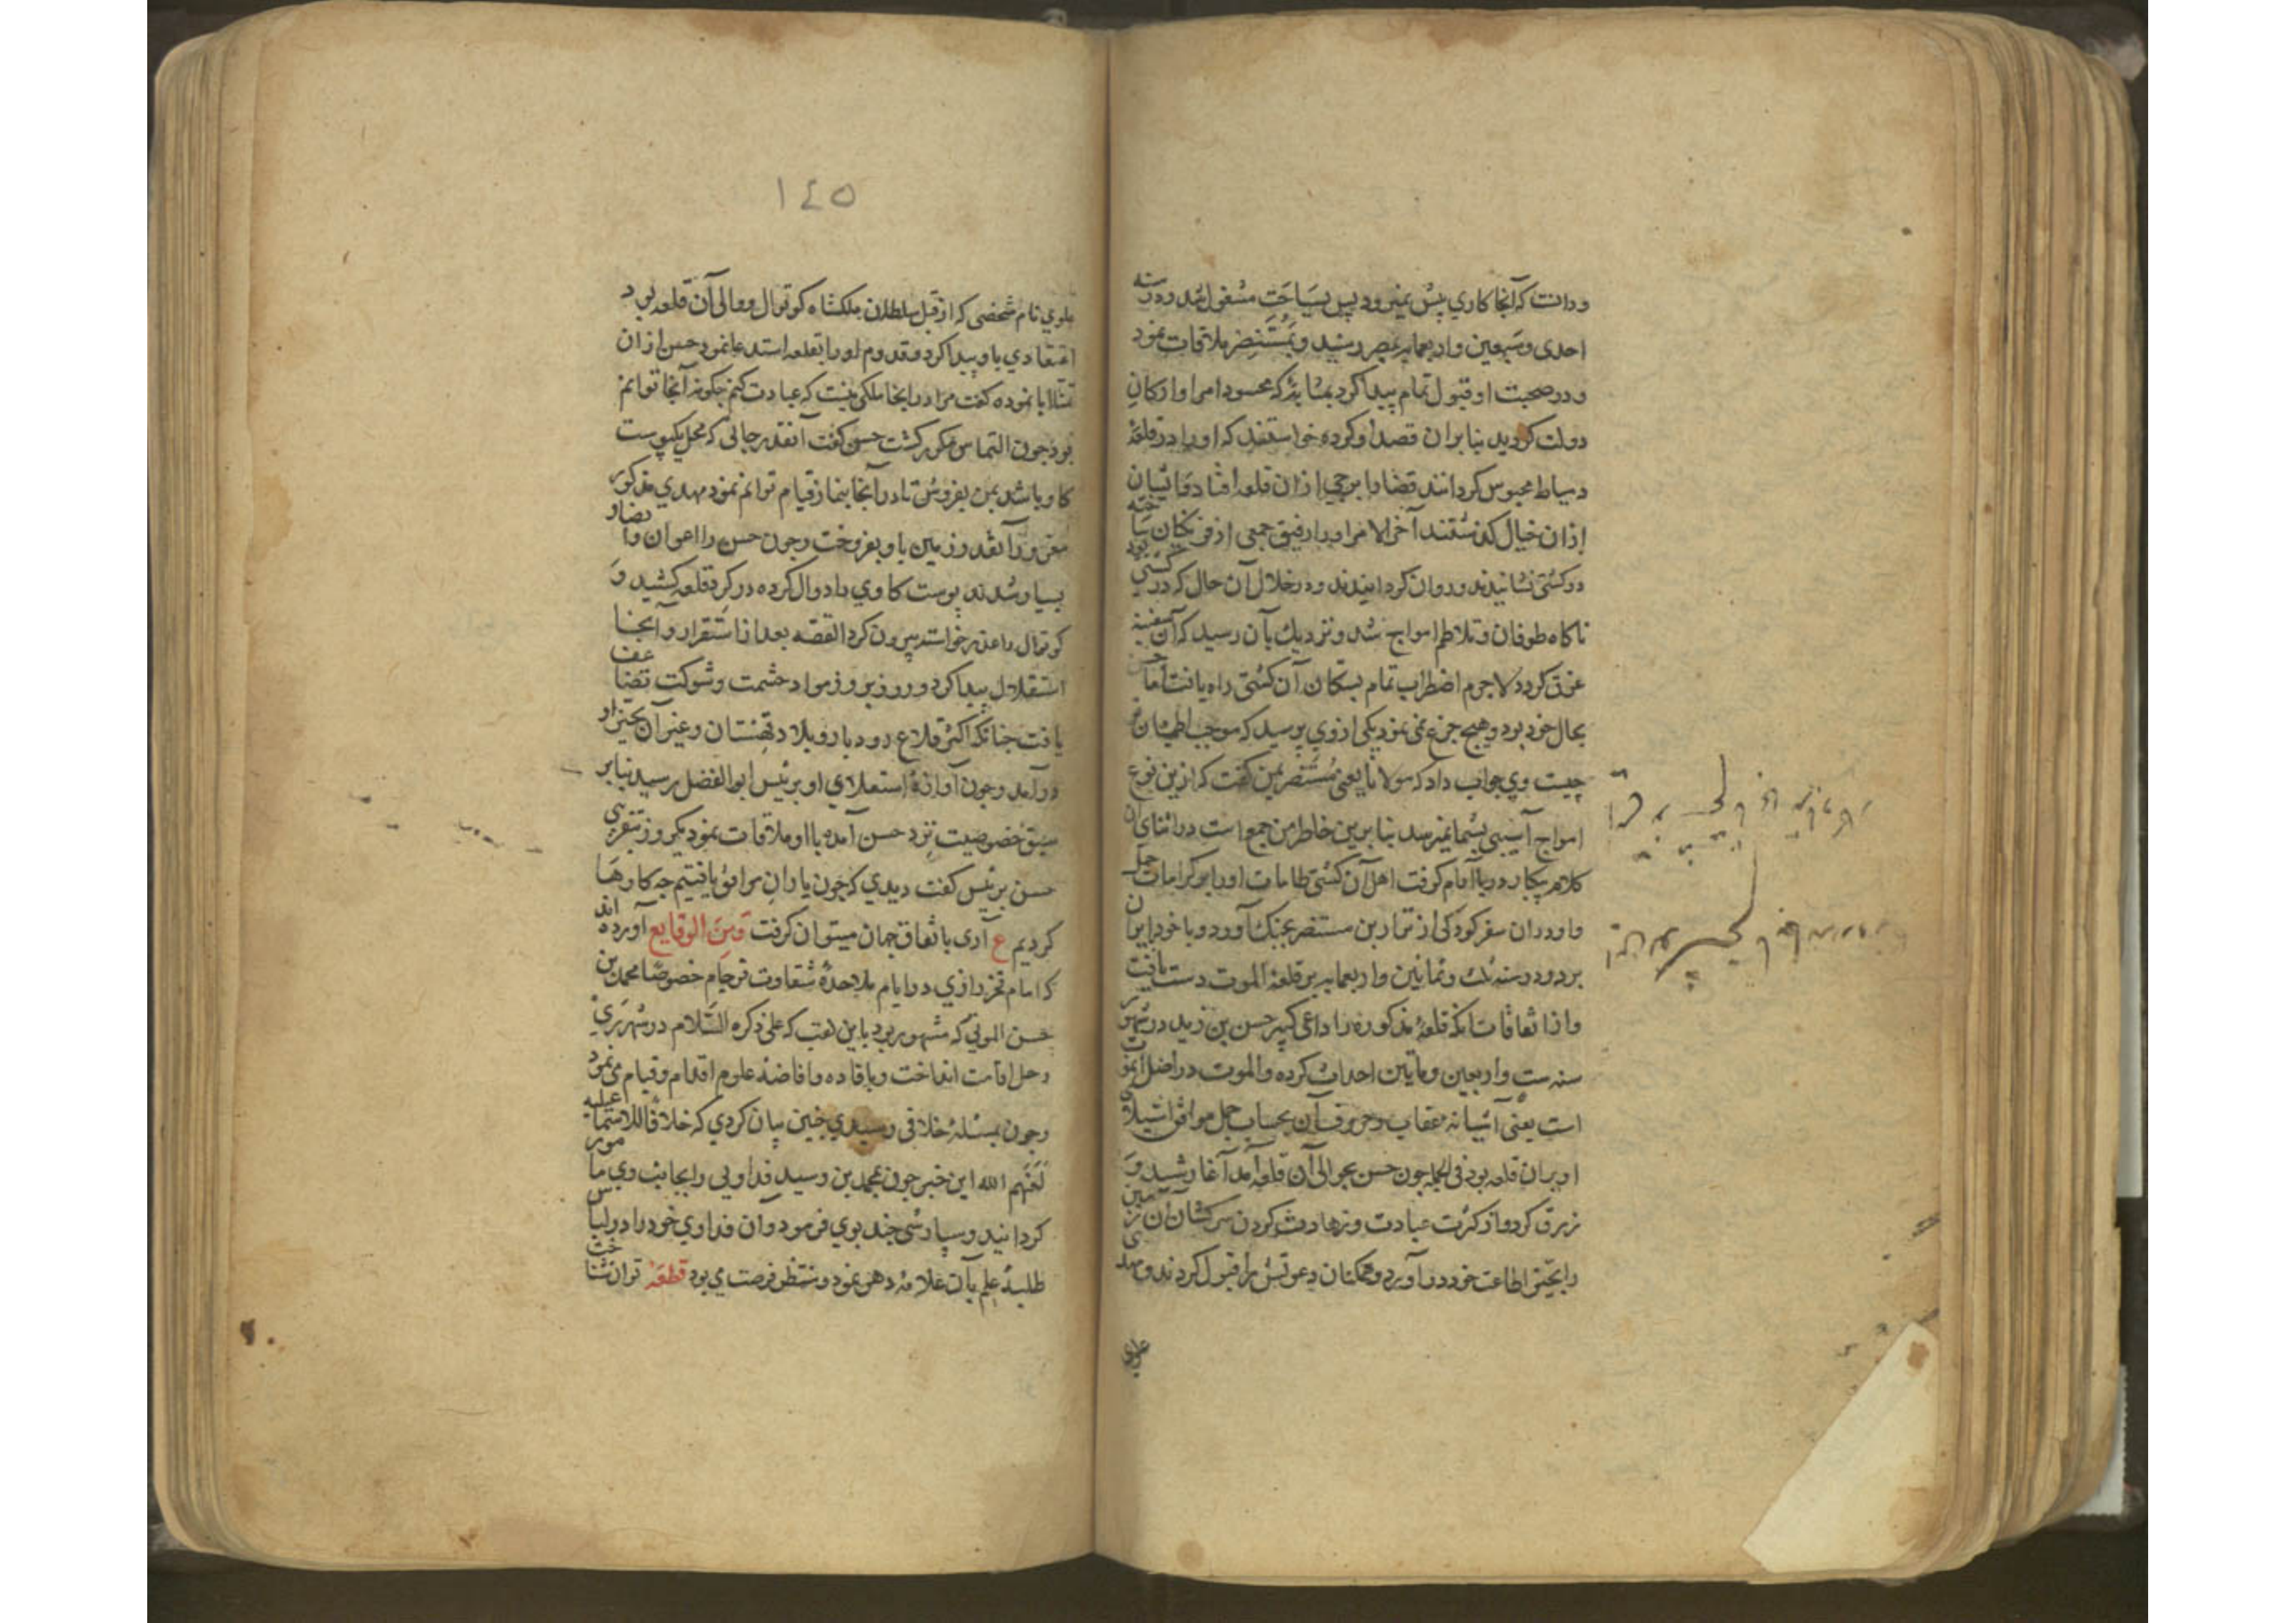 و دانست که آنجا کاری پیش نمیرود پس بسیاحت مشغول شد و در سنه
احدی و سبعین و اربعمایه بمصر رسید و بمستنصر ملاقات نمود
و در صحبت او قبول تمام پیدا کرد بمثابهٔ که محسود امرا و ارکان
دولت کردید بنا بران قصد او کرده خواستند که او را در قلعهٔ
دمیاط محبوس کردانند قضا را برجی از ان قلعه افتاد و مانیان
از ان خیال کذشتند آخر الامر او را رفیق جمعی از فرنکان ساخته
در کشتی نشانیدند و روان کردانیدند و در خلال آن حال که در کشتی بود
ناکاه طوفان و تلاطم امواج شد و نزدیک بآن رسید که آن سفینه
غرق کردد لاجرم اضطراب تمام بسکان آن کشتی راه یافت اما حسن
بحال خود بود و هیچ جزع نمی نمود یکی از وی پرسید که موجب اطمینان تو
چیست وی جواب داد که مولانا یعنی مستنصر بمن کفت که ازین نوع
امواج آسیبی بشما نمیرسد بنا برین خاطر من جمع است در اثنای آن
کلام بیکبار دریا آرام کرفت اهل آن کشتی طامات او را بر کرامات حمل
و او در ان سفر کودکی از نژاد بن مستنصر بچنک آورد و با خود بایران
برد و در سنه ثلث و ثمانین و اربعمایه بر قلعهٔ الموت دست یافت
و از اتفاقات آنکه قلعهٔ مذکوره را داعی کبیر حسن بن زید در شهور
سنه ست و اربعین و مایتین احداث کرده و الموت در اصل آله اموت
است یعنی آشیانه عقاب و حروف آن بحساب جمل موافق استیلای
او بران قلعه بود فی الجمله چون حسن بحوالی آن قلعه آمد آغاز شید و
زرق کرد و از کثرت عبادت و زهادت کردن سرکشان آن زمین
را بحیز اطاعت خود در آورد و ممکنان دعوتش را قبول کردند و مهدی
علوی
۱٤٥
علوی نام شخصی که از قبل سلطان ملکشاه کوتوال و والی آن قلعه بود
اعتقادی باو پیدا کرد و قدوم او را بقلعه استدعا نمود حسن از ان
ابا نموده کفت مرا در اینجا ملکی نیست که عبادت کنم چکونه آنجا توانم
بود چون التماس مکرر کشت حسن کفت آنقدر جائی که محل یک پوست
کاو باشد بمن بفروش تا در آنجا بنماز قیام توانم نمود مهدی مذکور
مغرور آنقدر زمین باو بفروخت و چون حسن را اعوان و انصار
بسیار شدند پوست کاوی را دوال کرده در کرد قلعه کشید و
کوتوال را عذر خواسته بیرون کرد القصه بعد از استقرار در آنجا
استقلال پیدا کرد و روز بروز مواد حشمت و شوکت تضاعف
یافت چنانکه اکثر قلاع رودبار و بلاد قهستان و غیر آن بحیز او
در آمد و چون آوازهٔ استعلای او برئیس ابو الفضل رسید بنا بر
سبق خصوصیت نزد حسن آمده با او ملاقات نمود یکروز بتقریبی
حسن برئیس کفت دیدی که چون یاران موافق یافتیم چه کارها
کردیم ع آری باتفاق جهان میتوان کرفت و من الوقایع آورده اند
که امام فخر رازی در ایام ملاحدهٔ شقاوت فرجام خصوصا محمد بن
حسن الموتی که مشهور بود باین لقب که علی ذکره السلام در شهر ری
رحل اقامت انداخت و بافاده و افاضهٔ علوم اقدام و قیام می نمود
و چون بمسئلهٔ خلافی رسیدی چنین بیان کردی که خلافا للاسماعیلیه
لعنهم الله این خبر چون بمحمد بن رسید فداویی را بجانب وی مامور
کردانید و سپارشی چند بوی فرمود و آن فداوی خود را در لباس
طلبهٔ علم بآن علامهٔ دهر نمود و منتظر فرصت می بود قطعه توان شناخت